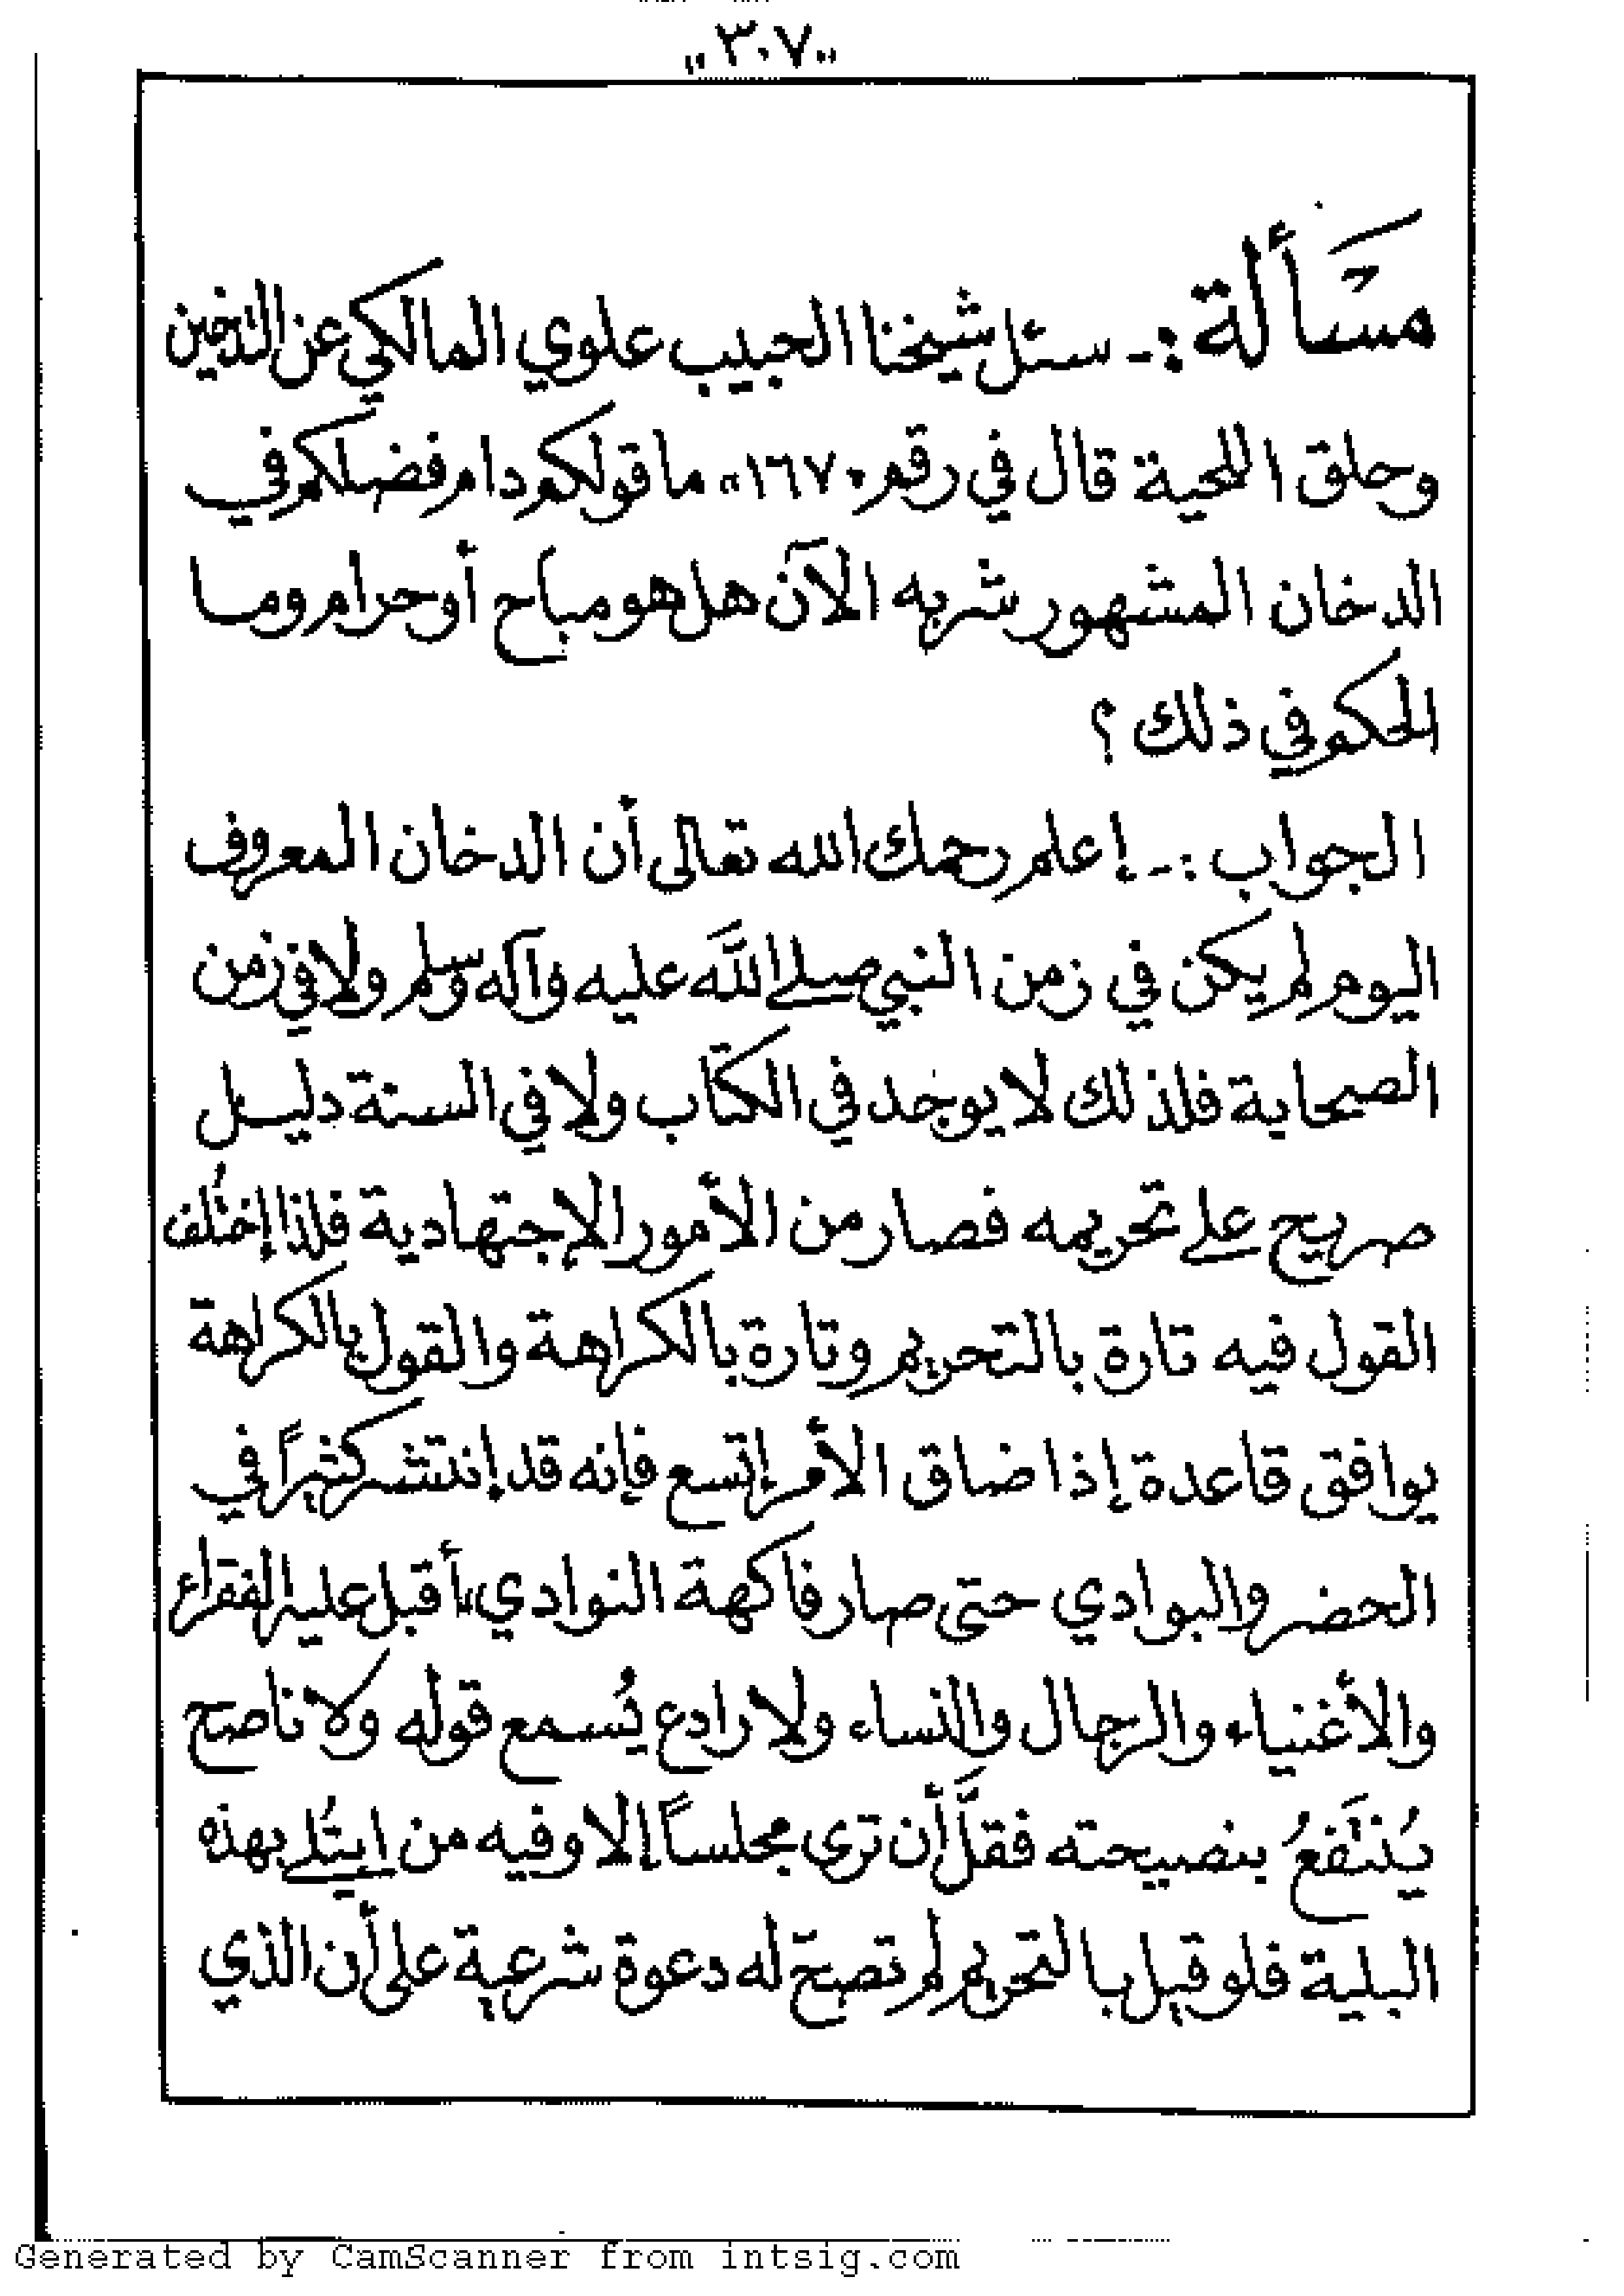 "٣٠٧"
مسَألة :- سئل شيخنا الحبيب علوي المالكي عن التدخين
وحلق اللحية قال في رقم "١٦٧" ما قولكم دام فضلكم في
الدخان المشهور شربه الآن هل هو مباح أو حرام وما
الحكم في ذلك ؟
الجواب :- إعلم رحمك الله تعالى أن الدخان المعروف
اليوم لم يكن في زمن النبي صلى اللَّه عليه وآله وسلم ولا في زمن
الصحابة فلذلك لا يوجد في الكتاب ولا في السنة دليل
صريح على تحريمه فصار من الأمور الإجتهادية فلذا إختُلف
القول فيه تارة بالتحريم وتارة بالكراهة والقول بالكراهة
يوافق قاعدة إذا ضاق الأمر إتسع فإنه قد إنتشر كثيرًا في
الحضر والبوادي حتى صار فاكهة النوادي، أقبل عليه الفقراء
والأغنياء والرجال والنساء ولا رادع يُسمع قوله ولا ناصح
يُنتَفعُ بنصيحته فقلَّ أن ترى مجلساً إلا وفيه من ابتُلي بهذه
البلية فلو قيل بالتحريم لم تصح له دعوة شرعية على أن الذي
Generated by CamScanner from intsig.com